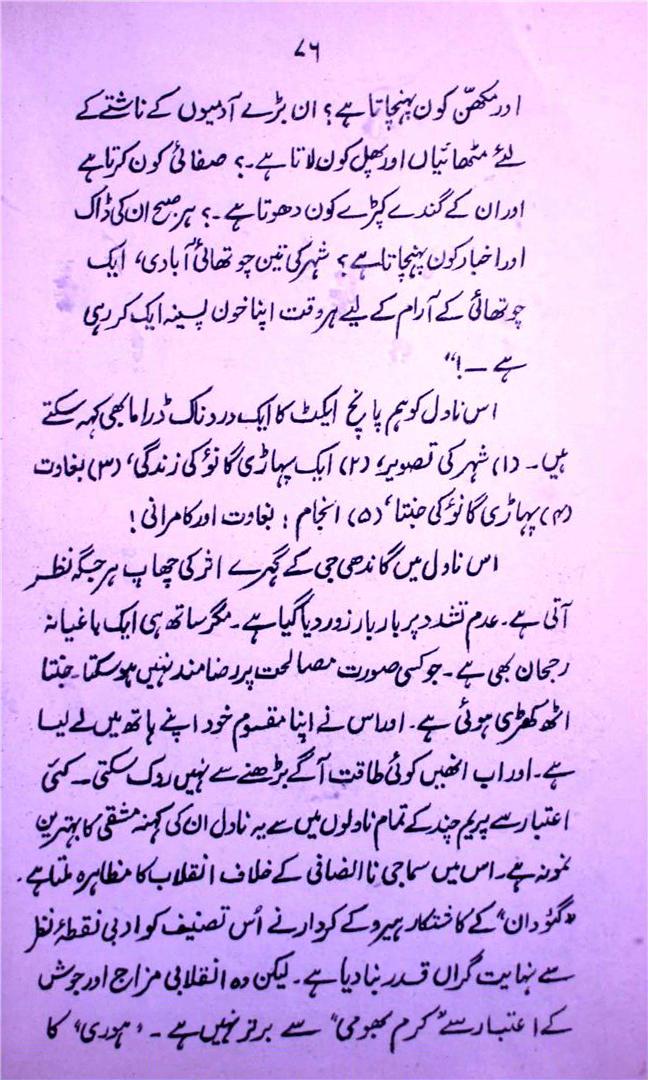 ۷۶
اور مکھّن کون پہنچاتا ہے؟ ان بڑے آدمیوں کے ناشتے کے
لئے مٹھائیاں اور پھل کون لاتا ہے۔؟ صفائی کون کرتا ہے
اور ان کے گندے کپڑے کون دھوتا ہے۔؟ ہر صبح ان کی ڈاک
اور اخبار کون پہنچاتا ہے؟ شہر کی تین چوتھائی آبادی، ایک
چوتھائی کے آرام کے لیے ہر وقت اپنا خون پسینہ ایک کر رہی
ہے ــ!“
اس ناول کو ہم پانچ ایکٹ کا ایک دردناک ڈراما بھی کہہ سکتے
ہیں۔ (۱) شہر کی تصویر، (۲) ایک پہاڑی گانؤ کی زندگی، (۳) بغاوت
(۴) پہاڑی گانؤ کی جنتا، (۵) انجام؛ بغاوت اور کامرانی!
اس ناول میں گاندھی جی کے گہرے اثر کی چھاپ ہر جگہ نظر
آتی ہے۔ عدم تشدد پر بار بار زور دیا گیا ہے۔ مگر ساتھ ہی ایک باغیانہ
رجحان بھی ہے۔ جو کسی صورت مصالحت پر رضامند نہیں ہو سکتا۔ جنتا
اٹھ کھڑی ہوئی ہے۔ اور اس نے اپنا مقسوم خود اپنے ہاتھ میں لے لیا
ہے۔ اور اب انھیں کوئی طاقت آگے بڑھنے سے نہیں روک سکتی۔ کئی
اعتبار سے پریم چند کے تمام ناولوں میں سے یہ ناول ان کی کہنہ مشقی کا بہترین
نمونہ ہے۔ اس میں سماجی ناانصافی کے خلاف انقلاب کا مظاہرہ ملتا ہے۔
”گئودان“ کے کاشتکار ہیرو کے کردار نے اُس تصنیف کو ادبی نقطۂ نظر
سے نہایت گراں قدر بنا دیا ہے۔ لیکن وہ انقلابی مزاج اور جوش
کے اعتبار سے ”کرم بھومی“ سے برتر نہیں ہے۔ ’ہوری‘ کا